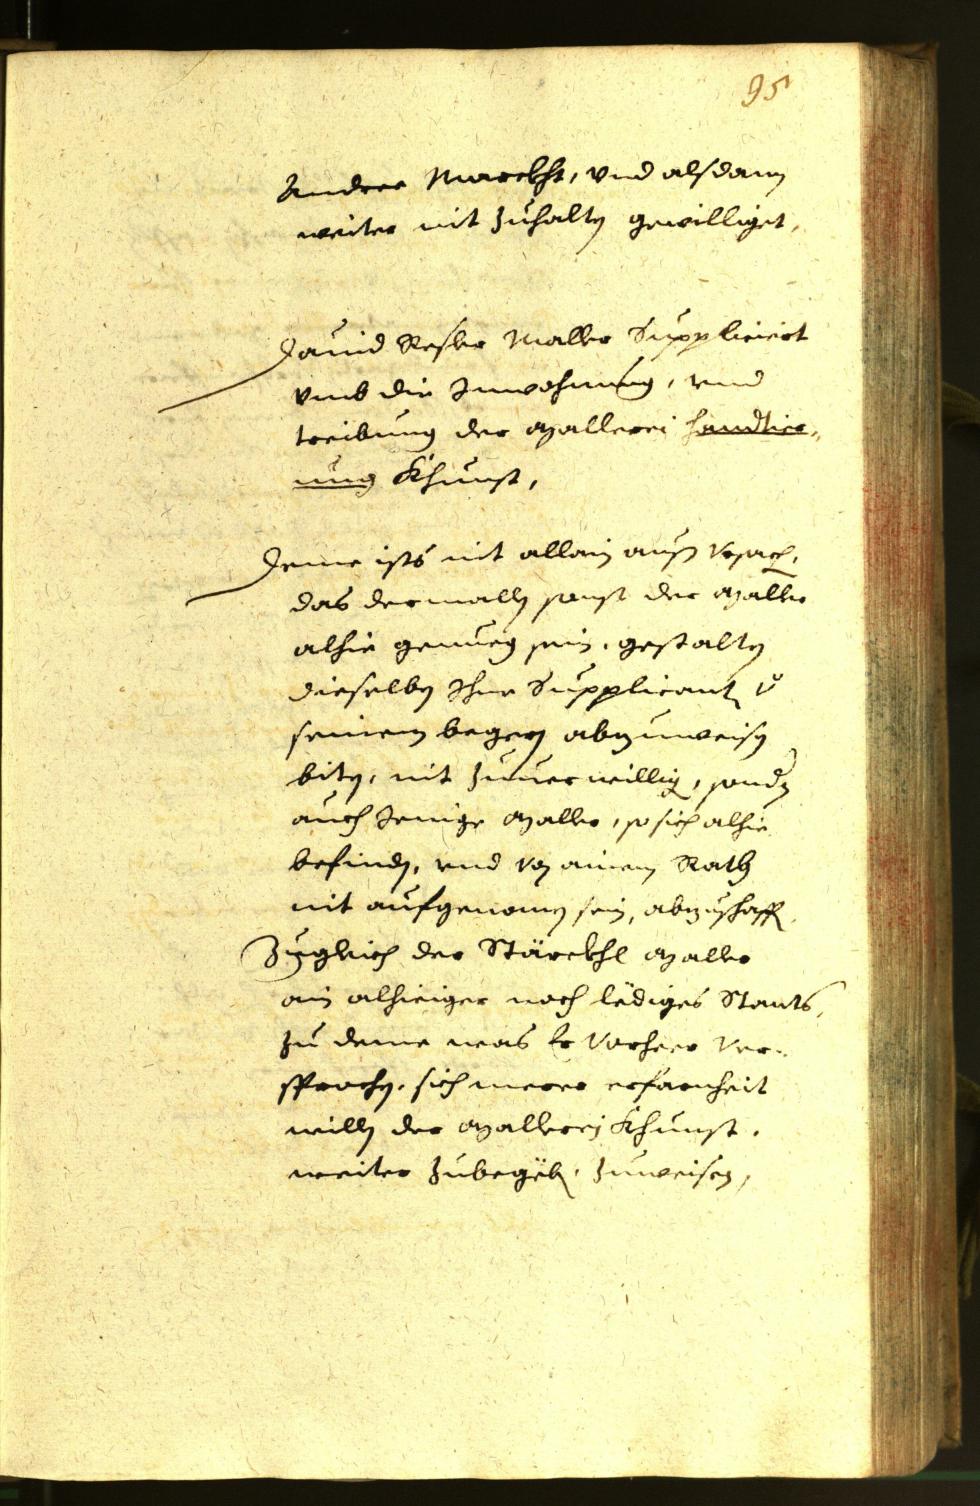 95
Andree Marckht, vnd alsdann
weiter nit zuhalten gewilliget.
Dauid Resler Maller Suppliciert
vmb die Inwohnung, vnd
treibung der Mallerei handtier-
nung Khunst,
Deme ists nit allain auß Vrsach,
das dermalln sonst der Maller
alhie genueg sein, gestalten
dieselben Ihne Supplicanten v
seinem begern abzuweisen
biten, nit zuuerwillig, sonder
auch Jenige Maller, so sich alhie
befinden, vnd von ainem Rath
nit aufgenomen sein, abzuschaffen
Zugleich der Stärckhl Maller
ain alhieiger noch lediges Stants,
zu deme was Er Vorheer Ver-
sprochen, sich merer erfarnheit
willn der Mallerej Khunst,
weiter zubegeben, zuweisen,